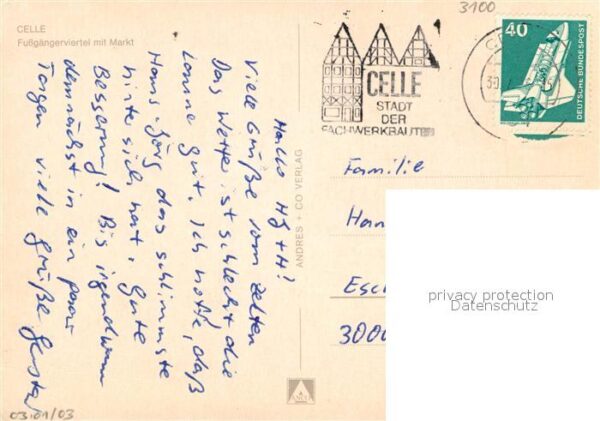 CELLE
Fußgängerviertel mit Markt
Hallo HJ + H!
Viele Grüße vom Zelten
Das Wetter ist schlecht die
Laune gut. Ich hoffe, daß
Hans-Jörg das schlimmste
hinter sich hat. Gute
Besserung! Bis irgendwann
demnächst in ein paar
Tagen viele Grüße
03.01/03
ANDRES + CO VERLAG
ANCO
3100
CELLE
STADT
DER
FACHWERKBAUTEN
40
DEUTSCHE BUNDESPOST
Familie
Han
Esch
3000
privacy protection
Datenschutz